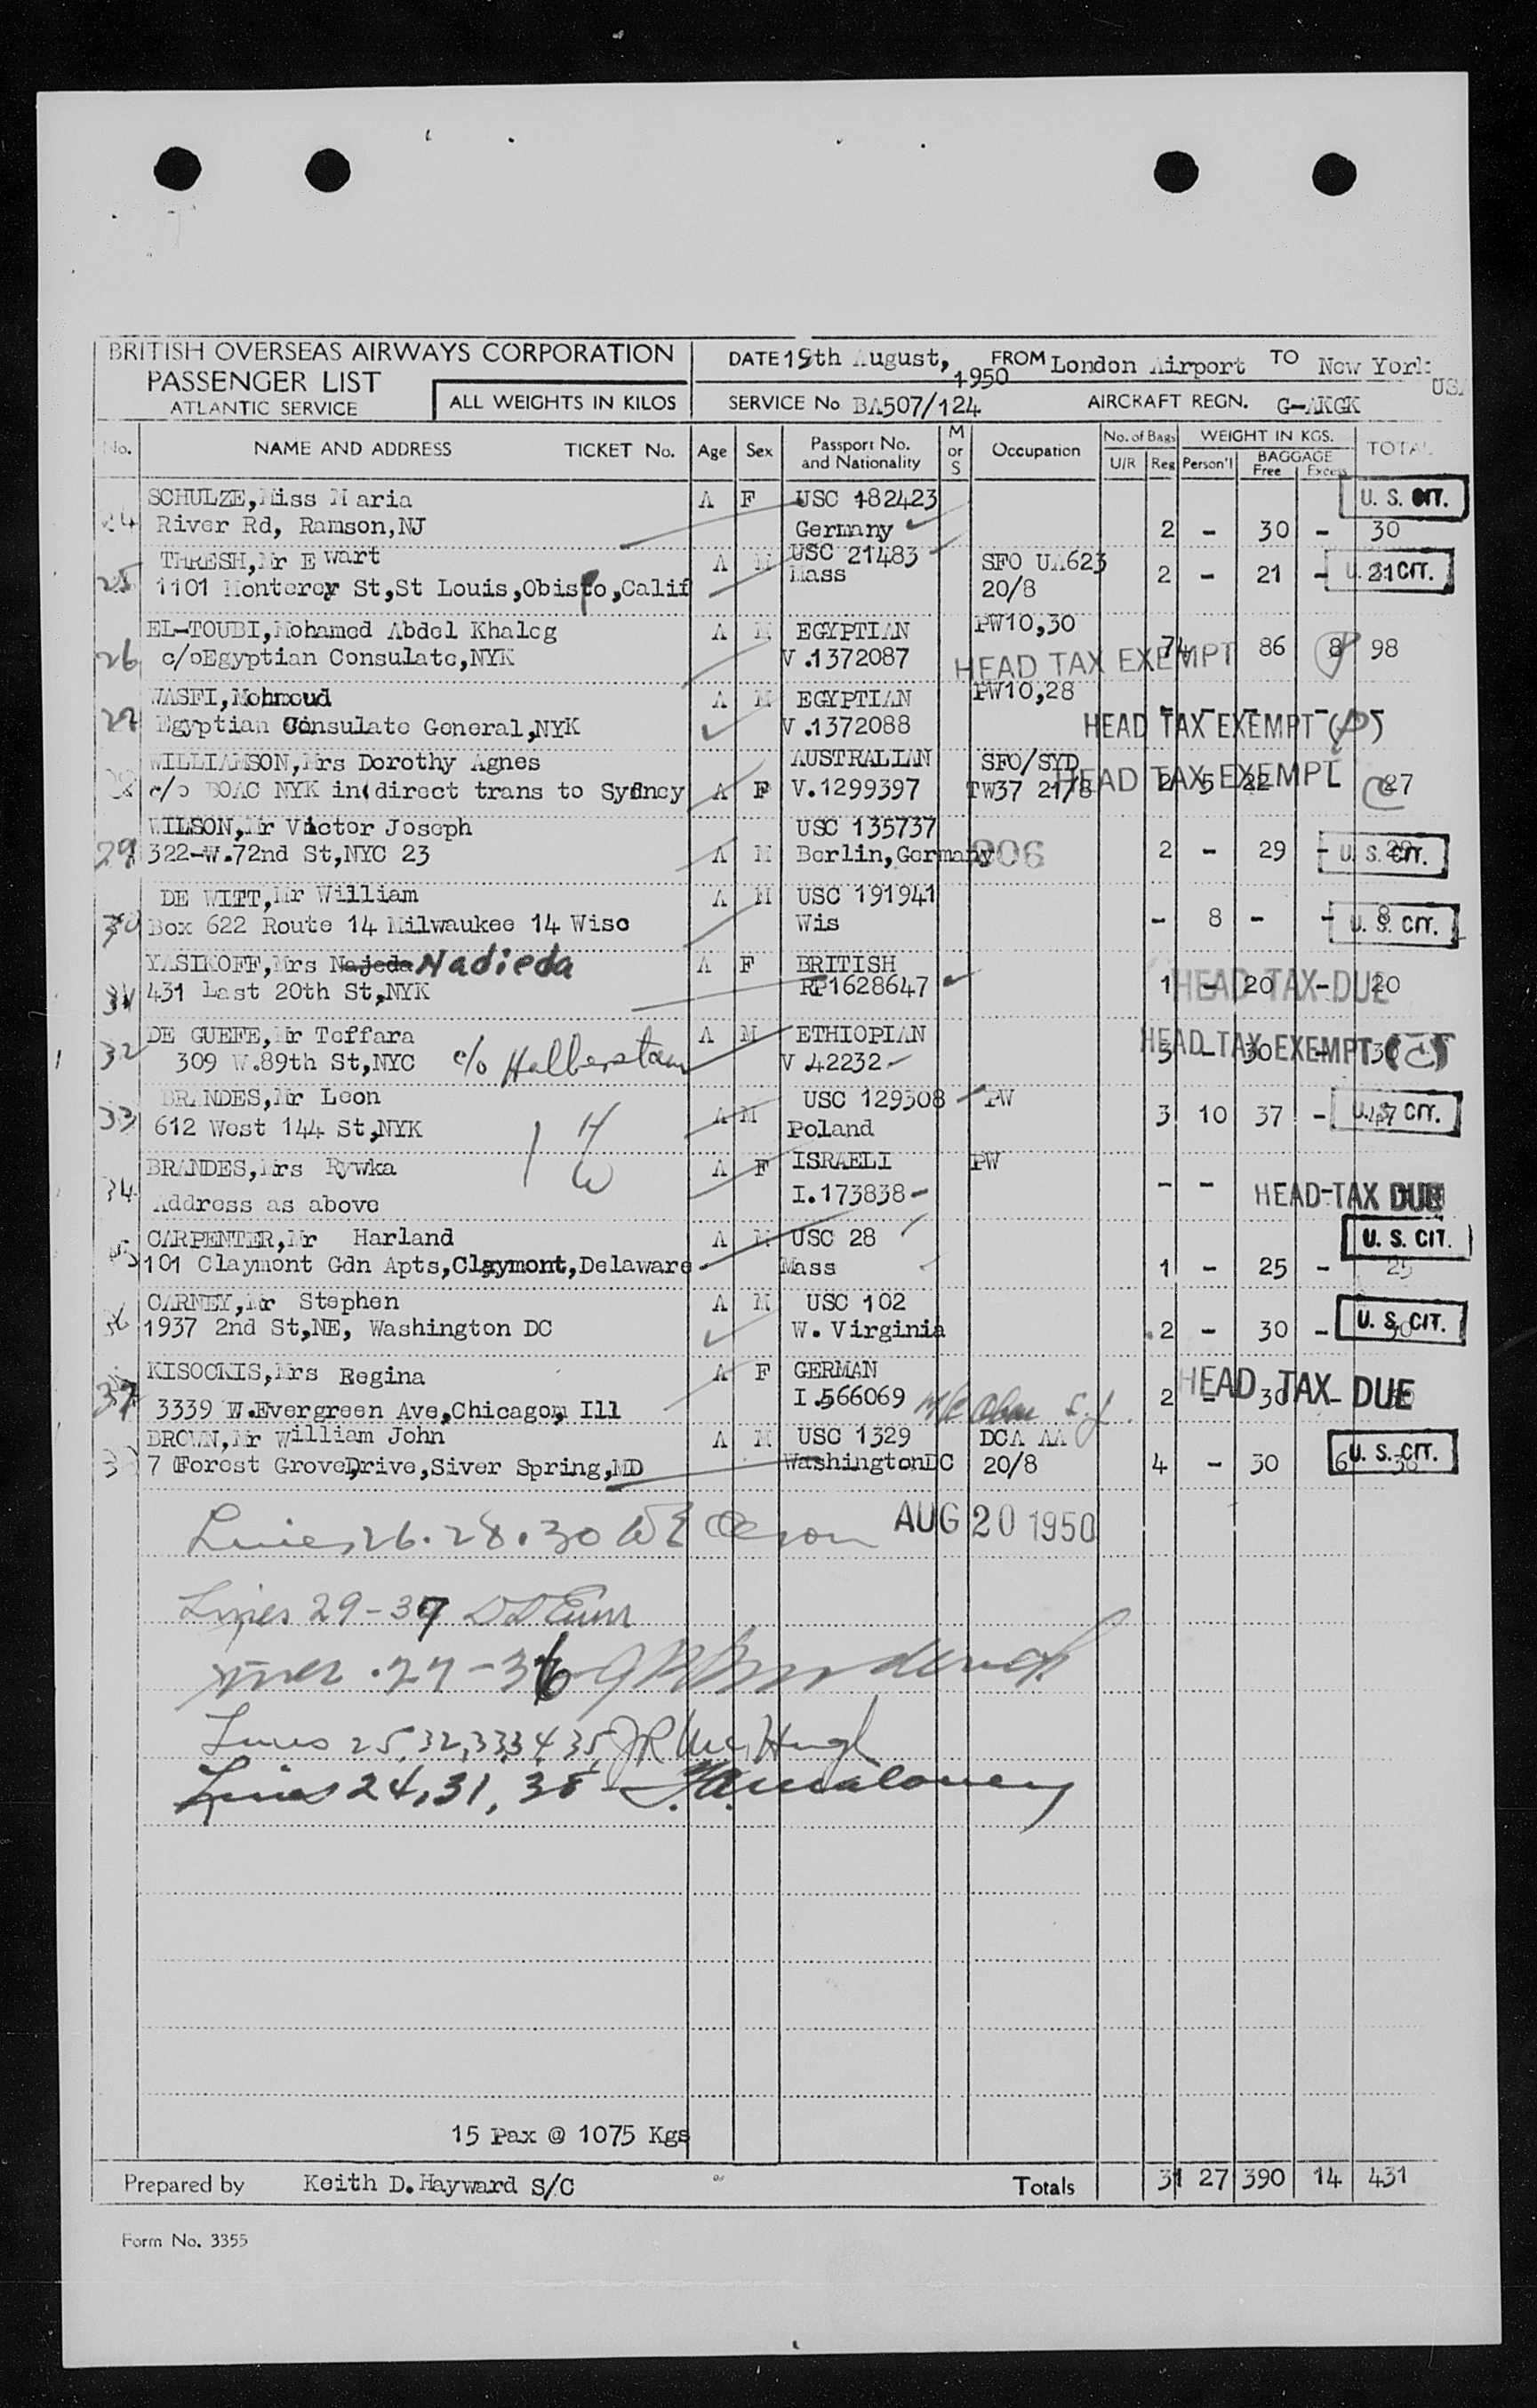 BRITISH OVERSEAS AIRWAYS CORPORATION
PASSENGER LIST
ATLANTIC SERVICE
ALL WEIGHTS IN KILOS
DATE 19th August, 1950 FROM London Airport TO New York USA
SERVICE No BA507/124 AIRCRAFT REGN. G-AKGK
No. NAME AND ADDRESS TICKET No. Age Sex Passport No. and Nationality M or S Occupation No. of Bags U/R Reg WEIGHT IN KGS. Person'l BAGGAGE Free Excess TOTAL
SCHULZE, Miss Maria A F USC 182423 U. S. CIT.
24 River Rd, Ramson, NJ Germany 2 - 30 - 30
THRESH, Mr Ewart A M USC 21483 SFO UA623
25 1101 Monterey St, St Louis, Obispo, Calif Mass 20/8 2 - 21 - 21 U. S. CIT.
EL-TOUBI, Mohamed Abdel Khaleg A M EGYPTIAN PW10,30
26 c/o Egyptian Consulate, NYK V.1372087 HEAD TAX EXEMPT 7 4 86 8 98
WASFI, Mohmoud A M EGYPTIAN PW10,28
27 Egyptian Consulate General, NYK V.1372088 - - - - HEAD TAX EXEMPT
WILLIAMSON, Mrs Dorothy Agnes AUSTRALIAN SFO/SYD
28 c/o BOAC NYK in direct trans to Sydney A F V.1299397 TW37 21/8 HEAD TAX EXEMPT 2 5 22 27
WILSON, Mr Victor Joseph USC 135737
29 322-W.72nd St, NYC 23 A M Berlin, Germany 906 2 - 29 - 29 U. S. CIT.
DE WITT, Mr William A M USC 191941
30 Box 622 Route 14 Milwaukee 14 Wisc Wis - 8 - - 8 U. S. CIT.
YASIKOFF, Mrs Najeda Nadieda A F BRITISH
31 431 East 20th St, NYK RP1628647 1 - 20 - 20 HEAD TAX DUE
DE GUEFE, Mr Teffara A M ETHIOPIAN HEAD TAX EXEMPT
32 309 W.89th St, NYC c/o Halberstam V 42232 3 - 30 - 30
BRANDES, Mr Leon USC 129308 PW
33 612 West 144 St, NYK A M Poland 3 10 37 - 47 U. S. CIT.
BRANDES, Mrs Rywka A F ISRAELI PW
34 Address as above I.173838 - - HEAD TAX DUE
CARPENTER, Mr Harland A M USC 28 U. S. CIT.
35 101 Claymont Gdn Apts, Claymont, Delaware Mass 1 - 25 - 25
CARNEY, Mr Stephen A M USC 102
36 1937 2nd St, NE, Washington DC W. Virginia 2 - 30 - 30 U. S. CIT.
KISOCKIS, Mrs Regina A F GERMAN
37 3339 W.Evergreen Ave, Chicago, Ill I.566069 2 - 30 - 30 HEAD TAX DUE
BROWN, Mr William John A M USC 1329 DCA AA
38 7 Forest Grove Drive, Siver Spring, MD Washington DC 20/8 4 - 30 6 36 U. S. CIT.
Lines 26.28.30
AUG 20 1950
Lines 29-37
27-36
Lines 25,32,33,34 35, JR McHugh
Lines 24,31,38 Maloney
15 Pax @ 1075 Kgs
Prepared by Keith D. Hayward S/C Totals 31 27 390 14 431
Form No. 3355